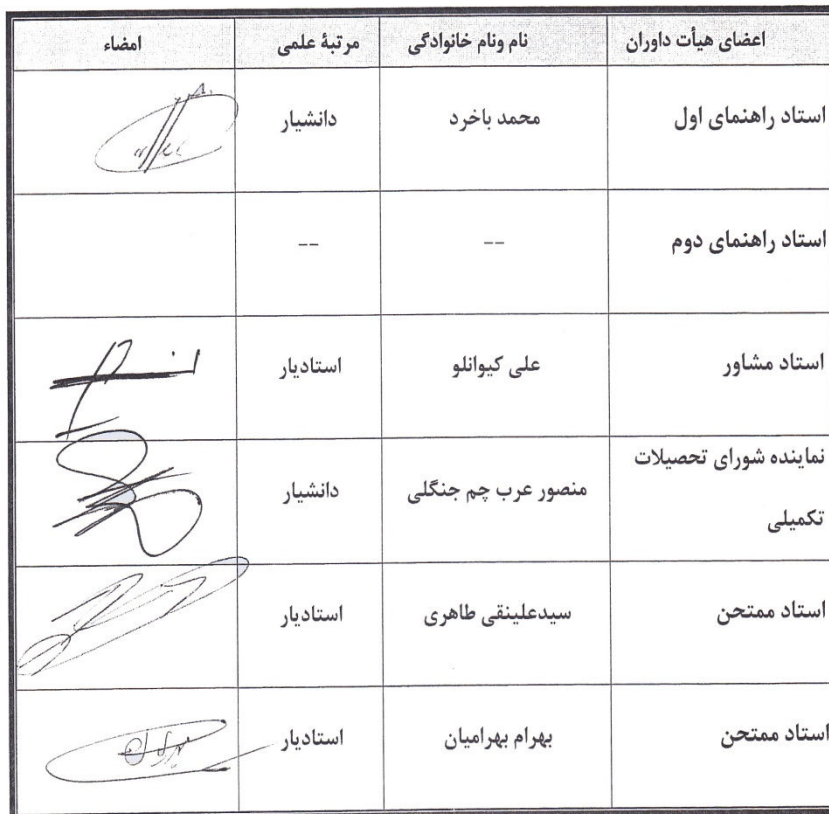 اعضای هیأت داوران نام ونام خانوادگی مرتبۀ علمی امضاء
استاد راهنمای اول محمد باخرد دانشیار
استاد راهنمای دوم -- --
استاد مشاور علی کیوانلو استادیار
نماینده شورای تحصیلات
تکمیلی منصور عرب چم جنگلی دانشیار
استاد ممتحن سیدعلینقی طاهری استادیار
استاد ممتحن بهرام بهرامیان استادیار